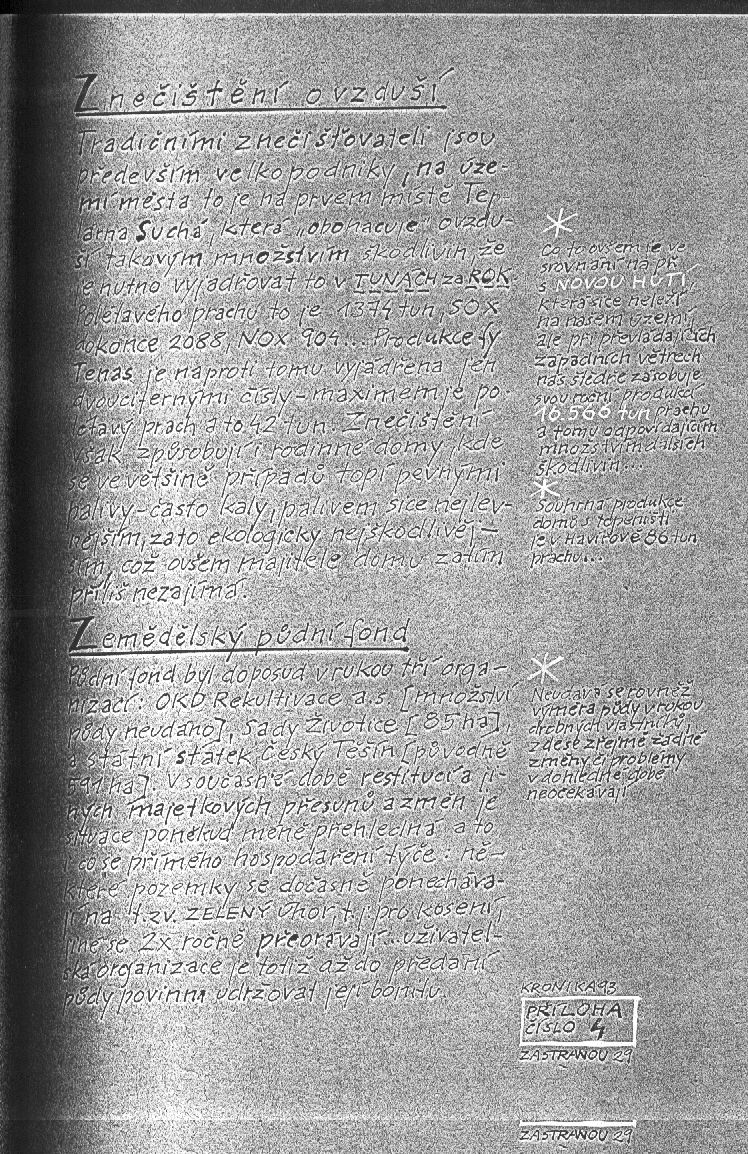 Znečištění ovzduší
Tradičními znečišťovateli jsou
především velkopodniky, na úze-
mí města to je na prvém místě Tep-
lárna Suchá, která "obohacuje" ovzdu-
ší takovým množstvím škodlivin, že
je nutno vyjadřovat to v TUNÁCH za ROK.
Poletavého prachu to je 1374 tun, SOX
dokonce 2088, NOX 904... Produkce fy
Tenas je naproti tomu vyjádřena jen
dvouciternými čísly-maximem je po-
létavý prach a to 42 tun. Znečištění
však způsobují i rodinné domy, kde
se ve většině případů topí pevnými
palivy-často kaly, palivem sice nejlev-
nějším, zato ekologicky nejškodlivěj-
ším, což ovšem majitele domu zatím
příliš nezajímá.
Zemědělský půdní fond
Půdní fond byl doposud v rukou tří orga-
nizací: OKD Rekultivace a.s. [množství
půdy neudáno], Sady Životice [85 ha],
a státní statek Český Těšín [původně
591 ha]. V současné době restitucí a ji-
ných majetkových přesunů a změn je
situace poněkud méně přehledná a to
i co se přímého hospodaření týče: ně-
které pozemky se dočasně ponecháva-
jí na t.zv. ZELENÝ úhor t.j. pro kosení,
jiné se 2x ročně přeorávají... uživatel-
ská organizace je totiž až do předání
půdy povinna udržovat její bonitu.
*
Co to ovšem je ve
srovnání na př.
s NOVOU HUTÍ,
která sice neleží
na našem území,
ale při převládajících
západních větrech
nás štědře zásobuje
svou roční produkcí
16.566 tun prachu
a tomu odpovídajícím
množstvím dalších
škodlivin...
*
Souhrná produkce
domů s topeništi
je v Havířově 86 tun
prachu...
*
Neudává se rovněž
výměra půdy v rukou
drobných vlastníků,
zde se zřejmě žádné
změny či problémy
v dohledné době
neočekávají
KRONIKA 93
PŘÍLOHA
ČÍSLO 4
ZA STRANOU 29
ZA STRANOU 29